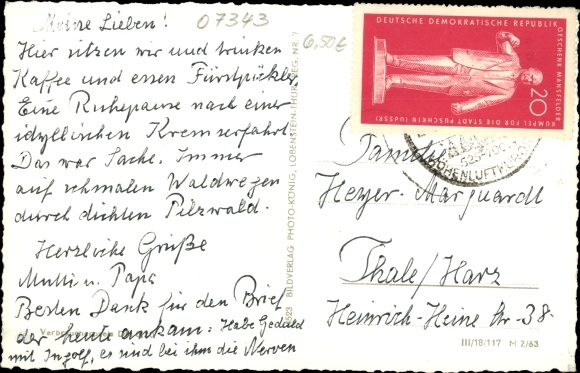 Meine Lieben!
07343
6,50€
Hier sitzen wir und trinken
Kaffee und essen Fürstpückler
Eine Ruhepause nach einer
idyllischen Kremserfahrt
Das war Sache. Immer
auf schmalen Waldwegen
durch dichten Pilzwald.
Herzliche Grüße
Mutti u. Papa
Besten Dank für den Brief
der heute ankam. Habe Geduld
mit Ingolf, es sind bei ihm die Nerven
BILDVERLAG PHOTO-KÖNIG, LOBENSTEIN-THÜR.
DEUTSCHE DEMOKRATISCHE REPUBLIK
GESCHENK MANSFELDER
KUMPEL FÜR DIE STADT PUSCHKIN (UDSSR)
20
Familie
Heyer-Marguardt
Thale/Harz
Heinrich-Heine Str. 38
III/18/117 M 2/63